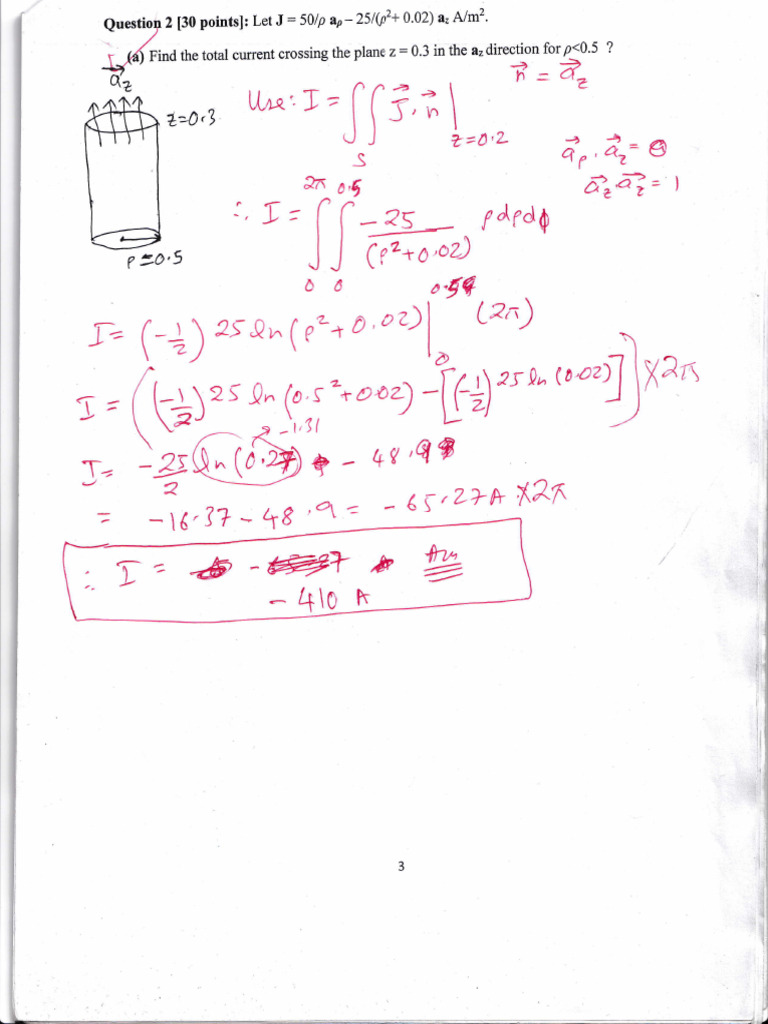 Question 2 [30 points]: Let J = 50/ρ aρ – 25/(ρ²+ 0.02) az A/m².
(a) Find the total current crossing the plane z = 0.3 in the az direction for ρ<0.5 ?
a⃗z
n⃗ = a⃗z
z=0.3
Use: I = ∬S J⃗ . n⃗ | z=0.2
a⃗ρ . a⃗z = 0
a⃗z a⃗z = 1
ρ=0.5
∴ I = ∫0^2π ∫0^0.5 -25/(ρ²+0.02) ρdρdϕ
I = (-1/2) 25 ln(ρ²+0.02) |0^0.5 (2π)
I = ((-1/2) 25 ln(0.5²+0.02) - [(-1/2) 25 ln(0.02)]) x2π
-1.31
I = -25/2 ln(0.27) - 48.9
= -16.37-48.9 = -65.27A x2π
∴ I = Ans
- 410 A
3